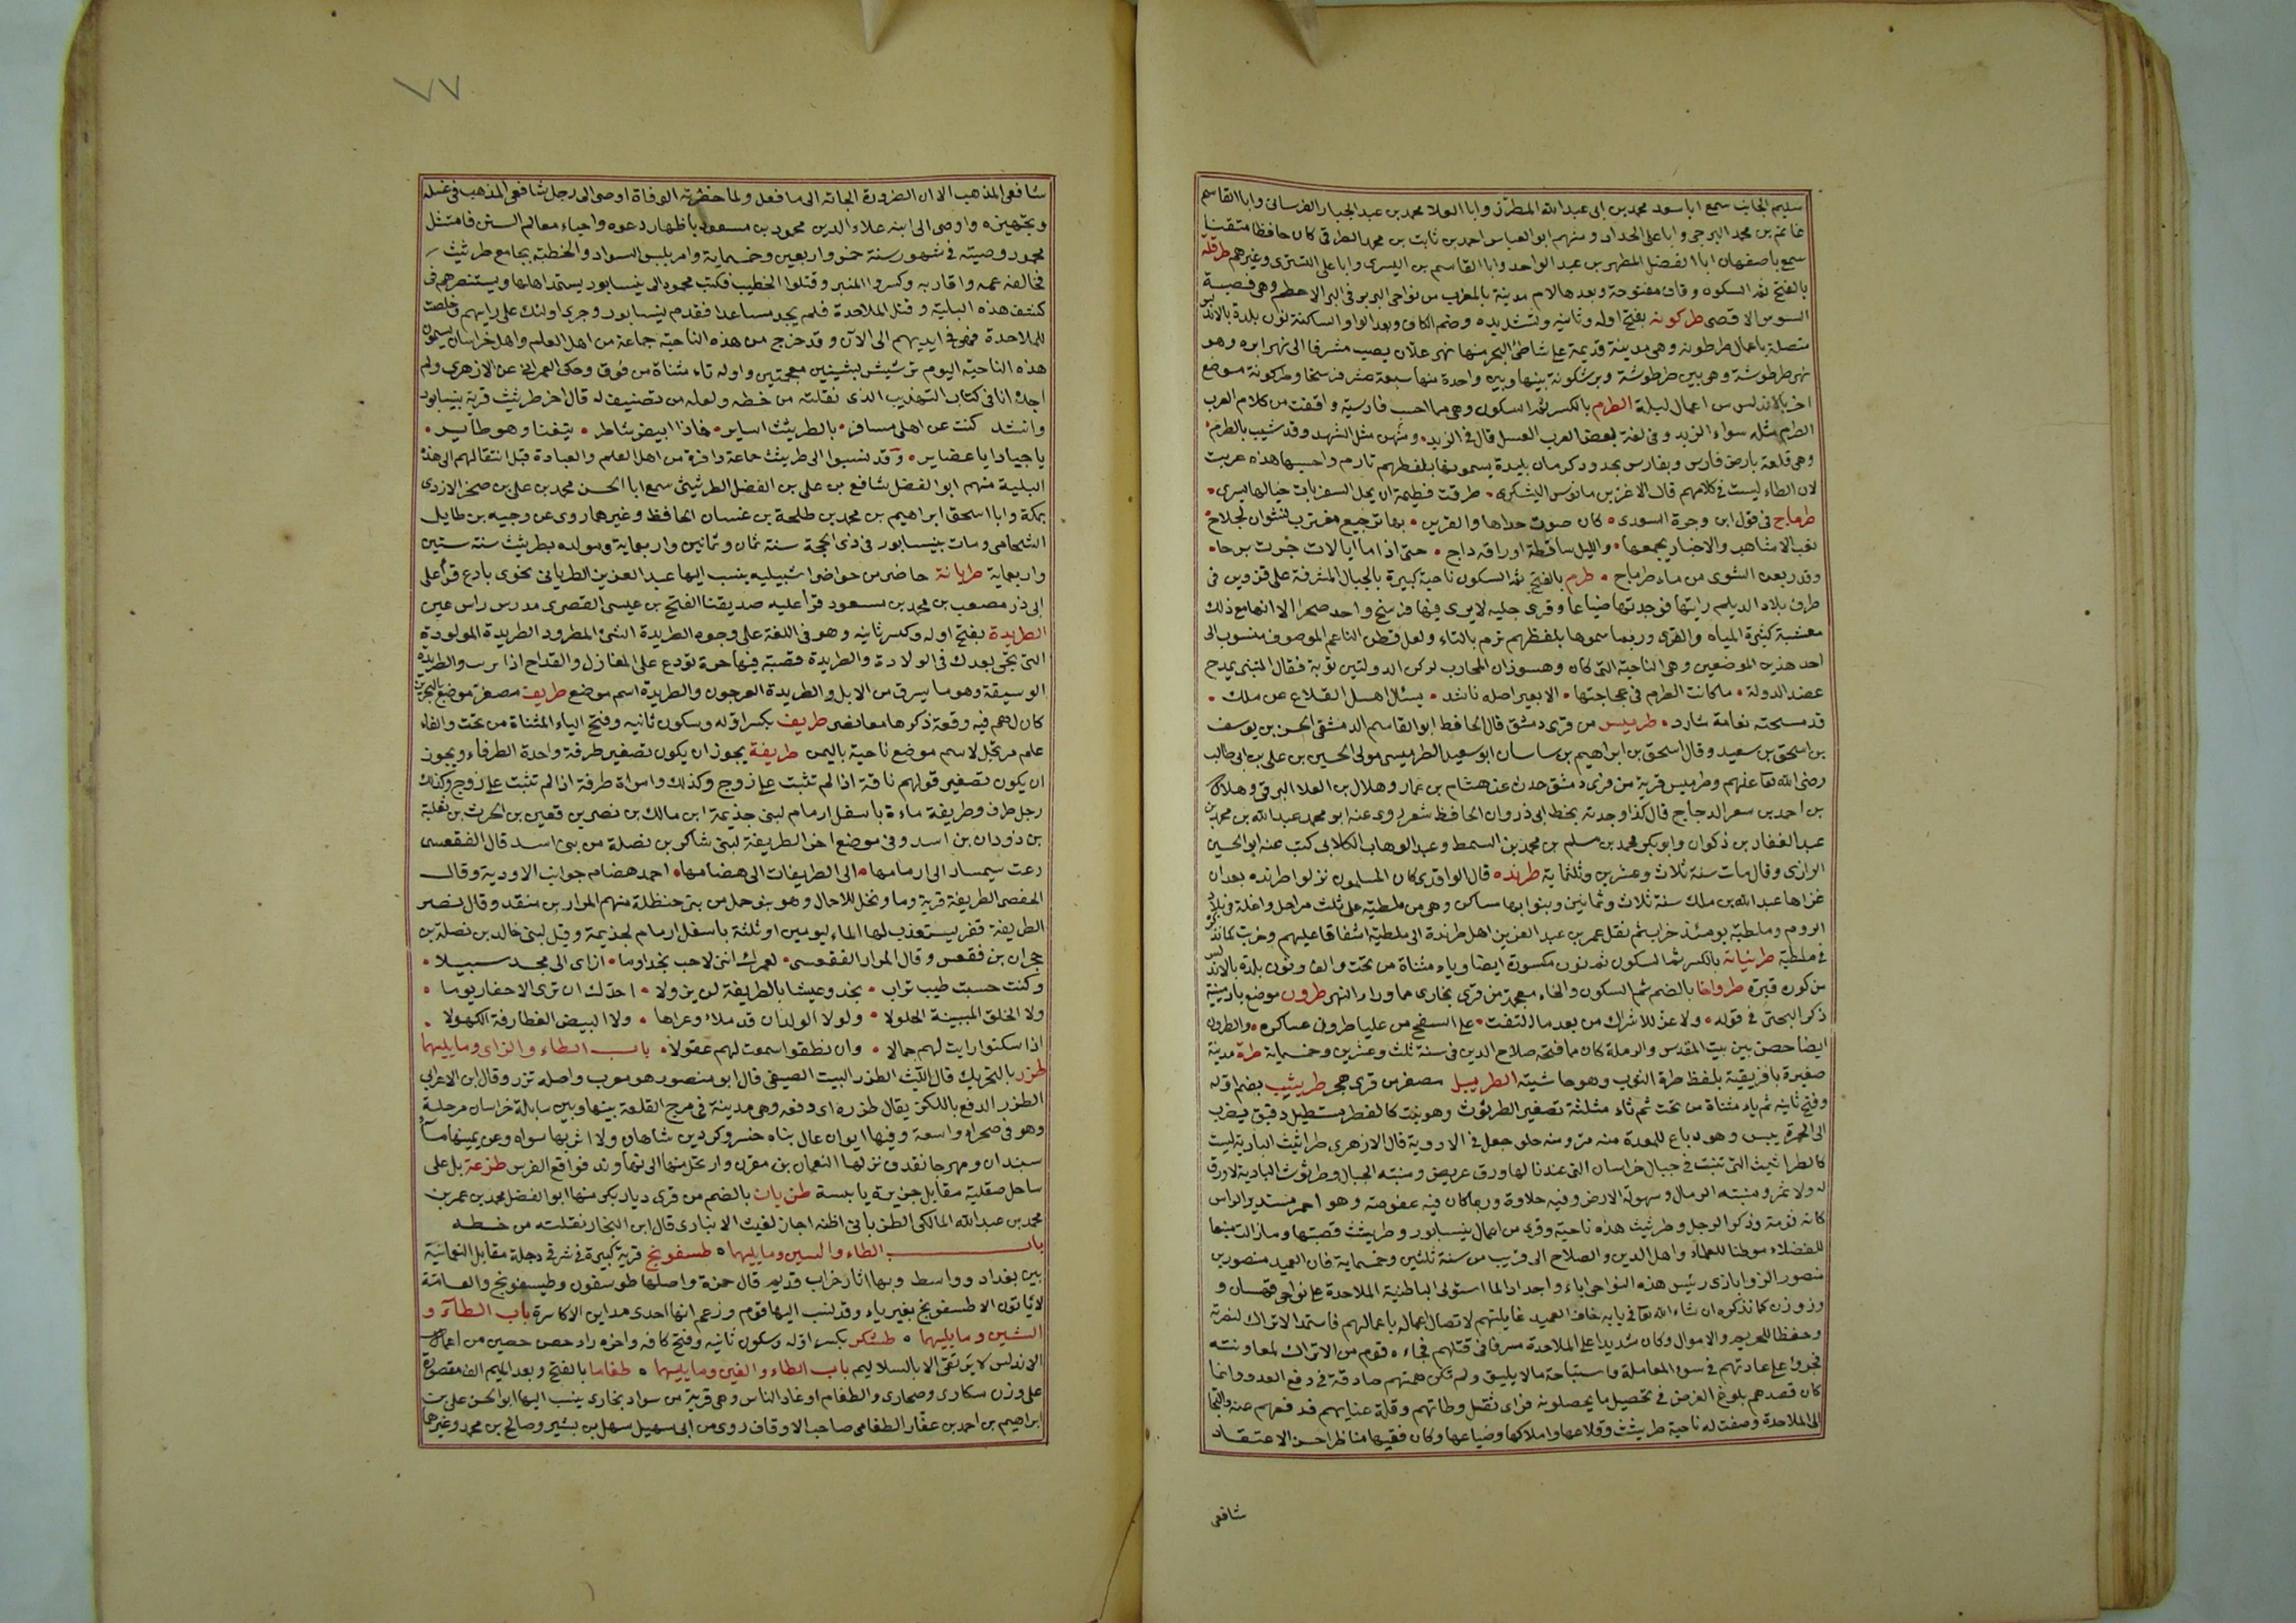 سليم الجانب سمع ابا سعد محمد بن ابى عبد الله المطرّز وابا العلا محمد بن عبد الجبار الفرسانى وابا القاسم
غانم بن محمد البرجى وابا على الحداد ومنهم ابو العباس احمد بن ثابت بن محمد الطرقى كان حافظا متقنا
سمع باصفهان ابا الفضل المطهر بن عبد الواحد وابا القاسم بن اليسرى وابا على التسترى وغيرهم طرقلة
بالفتح ثم السكون وقاف مفتوحة وبعدها لام مدينة بالمغرب من نواحى البربر فى البر الاعظم وهى قصبة
السوس الاقصى طركونه بفتح اوله وثانيه وتشديده وضم الكاف وبعد الواو الساكنة نون بلدة بالاندلس
متصلة باعمال طرطوشه وهى مدينة قديمة على شاطئ البحر منها نهر علّان يصب مشرقا الى نهر ابره وهو
نهر طرطوشة وهى بين طرطوشة وبرشلونة بينها وبين واحدة منها سبعة عشر فرسخا وطركونة موضع
اخر بالاندلس من اعمال لبلة الطرم بالكسر ثم السكون وهى فيما احسب فارسية وافقت من كلام العرب
الطرم مثله سواء الزبد وفى لغة لبعض العرب العسل قال فى الزبد ومنهن مثل الشهد وقد شيب بالطرم
وهى قلعة بارض فارس وبفارس بحدود كرمان بليدة يسمونها بلفظهم تارم واحسبها هذه عربت
لان الطاء ليست فى كلامهم قال الاغر بن مانوس اليشكرى طرقت فطيمة ان يحل السفر بات خيالها يسرى
طرماح فى قول ابن وجرة السعدى كان صوت حداها والقرين بها ترجيع مغترب نشوان لجلاج
نعب الاشاهب والاخبار يجمعها والليل ساقطة اوراقه داج حتى اذا ما ايالات جرت برحا
وقد ربعن الشوى من ماء طرماح طرم بالفتح ثم السكون ناحية كبيرة بالجبال المشرفة على قزوين فى
طرف بلاد الديلم رايتها فوجدتها ضياعا وقرى جبلية لا يرى فيها فرسخ واحد صحرا الا انها مع ذلك
معشبة كثيرة المياه والقرى وربما سموها بلفظهم ترم بالتاء ولعل قطن الناعم الموصوف منسوب الى
احد هذين الموضعين وهى الناحية التى كان وهسوذان المحارب لركن الدولتين نوبة فقال المتنبى يمدح
عضد الدولة ما كانت الطرم فى عجاجتها الا بعيرا ضله ناشد يسئل اهل القلاع عن ملك
قد مسخته نعامة شارد طرميس من قرى دمشق قال الحافظ ابو القاسم الدمشقى الحسن بن يوسف
بن اسحق بن سعيد وقال اسحق بن ابراهيم بن ساسان ابو سعيد الطرميسى مولى الحسين بن على بن ابى طالب
رضى الله تعا عنهم وطرميس قرية من قرى دمشق حدث عن هشام بن عمار وهلال بن العلا البرقى وهلال
بن احمد بن سعر الدجاج قال كذا وجدته بخط ابى ذروان الحافظ شعر روى عنه ابو محمد عبد الله بن محمد بن
عبد الغفار بن ذكوان وابو بكر محمد بن مسلم بن محمد بن السمط وعبد الوهاب الكلابى كتب عنه ابو الحسين
الرازى وقال مات سنة ثلاث وعشرين وثلثماية طرنده قال الواقدى كان المسلمون نزلوا طرنده بعد ان
غزاها عبد الله بن ملك سنة ثلاث وثمانين وبنوا بها مساكن وهى من ملطية على ثلث مراحل واغلة فى بلاد
الروم وملطية يومئذ خراب ثم نقل عمر بن عبد العزيز اهل طرندة الى ملطية اشفاقا عليهم وخرب كما نذكر
فى ملطية طرنيانة بالكسر ثم السكون ثم نون مكسورة ايضا وياء مثناة من تحت والف ونون بلدة بالاندلس
من كورة قبرة طرواخا بالضم ثم السكون والخاء معجمة من قرى بخارى مما وراء النهر طرون موضع بارمينية
ذكره البحترى فى قوله ولا عز للاشراك من بعد ما التقت على السفح من عليا طرون عساكره والطرون
ايضا حصن بين بيت المقدس والرملة كان مما فتحه صلاح الدين فى سنة ثلث وعشرين وخمسماية طرة مدينة
صغيرة بافريقية بلفظ طرة الثوب وهو حاشيته الطريبل مصغر من قرى هجر طريثيث بضم اوله
وفتح ثانيه ثم ياء مثناة من تحت ثم ثاء مثلثة تصغير الطرثوث وهو نبت كالفطر مستطيل دقيق يضرب
الى الحمرة يبس وهو دباغ للمعدة منه مرّ ومنه حلو جعل فى الادوية قال الازهرى طراثيث البادية ليست
كالطراثيث التى تنبت فى جبال خراسان التى عندنا لها ورق عريض ومنبته الجبال وطرثوث البادية لا ورق
له ولا ثمر ومنبته الرمال وسهولة الارض وفيه حلاوة وربما كان فيه عفوصة وهو احمر مستدير الراس
كانه ثومة ذكر الرجل وطريثيث هذه ناحية وقرى من اعمال نيسابور وطريثيث قصبتها وما زالت منبعا
للفضلاء موطنا للعلماء واهل الدين والصلاح الى قريب من سنة ثلثين وخمسماية فان العميد منصور بن
منصور الزوابازى رئيس هذه النواحى اباء واجدادا لما استولى الباطنية الملاحدة على نواحى قهستان و
وزوزن كما نذكره ان شاء الله تعا فى بابه خاف العميد غايلتهم لاتصال اعماله باعمالهم فاستمد الاتراك لنصرته
وحفظا للحريم والاموال وكان شديدا على الملاحدة مسرفا فى قتلهم فجاءه قوم من الاتراك لمعاونته
فجروا على عادتهم فى سوء المعاملة واستباحة ما لا يليق ولم تكن همتهم صادقة فى دفع العدو وانما
كان قصدهم بلوغ الغرض فى تحصيل ما يحصلونه فراى ثقل وطاتهم وقلة عنايتهم فدفعهم عنه والتجا
الى الملاحدة وصفت له ناحية طريثيث وقلاعها واملاكها وضياعها وكان فقيها مناظرا حسن الاعتقاد
شافعى
٧٧
شافعى المذهب الا ان الضرورة الجاته الى ما فعل ولما حضرته الوفاة اوصى الى رجل شافعى المذهب فى غسله
وتجهيزه واوصى الى ابنه علاء الدين محمود بن مسعود باظهار دعوه واحياء معالم السنن فامتثل
محمود وصيته فى شهور سنة خمس واربعين وخمسماية وامر بلبس السواد والخطبة بجامع طريثيث
فخالفه عمه واقاربه وكسروا المنبر وقتلوا الخطيب فكتب محمود الى نيسابور يستمد اهلها ويستنصرهم فى
كشف هذه البلية وقتل الملاحدة فلم يجد مساعدا فقدم نيسابور وجرى اولئك على رايهم فخلصت
للملاحدة فهو فى ايديهم الى الآن وقد خرج من هذه الناحية جماعة من اهل العلم واهل خراسان يسمون
هذه الناحية اليوم ترشيش بشينين معجمتين واوله تاء مثناة من فوق وحكى العمرانى عن الازهرى ولم
اجده انا فى كتاب التهذيب الذى نقلته من خطه ولعله من تصنيف له قال اخر طريثيث قرية بنيسابور
وانشد كنت عن اهلى مسافر بالطريثيث اساير فاذا ابيض شاطر يتغنا وهو طاير
يا جيادا يا عضاير وقد نسبوا الى طريثيث جماعة وافرة من اهل العلم والعبادة قبل انتقالهم الى هذه
البلية منهم ابو الفضل شافع بن على بن الفضل الطريثيثى سمع ابا الحسن محمد بن على بن صخر الازدى
بمكة وابا اسحق ابراهيم بن محمد بن طلحة بن غسان الحافظ وغيرهما روى عن وجيه بن طايل
الشحامى ومات بنيسابور فى ذى الحجة سنة ثمان وثمانين واربعماية ومولده بطريثيث سنة ستين
واربعماية طريانة حاضر من حواضر اشبيليه ينسب اليها عبد العزيز الطريانى نحوى بادع قرأ على
ابى ذر مصعب بن محمد بن مسعود قرا عليه صديقنا الفتح بن عيسى القصرى مدرس راس عين
الطريدة بفتح اوله وكسر ثانيه وهو فى اللغة على وجوه الطريدة الشئ المطرود الطريدة المولودة
التى تجى بعدك فى الولادة والطريدة قصبة فيها حزة توضع على المغازل والقداح اذا برـت والطريدة
الوسيقة وهو ما يسرق من الابل والطريدة العرجون والطريدة اسم موضع طريف مصغر موضع بالبحرين
كان لهم فيه وقعة ذكرها معا نصر طريف بكسر اوله وسكون ثانيه وفتح الياء المثناة من تحت والفاء
علم مرتجل لاسم موضع ناحية باليمن طريفة يجوز ان يكون تصغير طرفة واحدة الطرفاء ويجوز
ان يكون تصغير قولهم ناقة اذا لم تثبت على زوج وكذلك وامراة طرفة اذا لم تثبت على زوج وكذلك
رجل طرف وطريفة ماءة باسفل ارمام لبنى جذيمة ابن مالك بن نصر بن قعين بن الحرث بن ثعلبة
بن دودان بن اسد وفى موضع اخر الطريفة لبنى شاكر بن نضلة من بنى اسد قال الفقعسى
رعت سيمساد الى ارمامها الى الطريفات الى هضامها احمد هضام جوانب الاودية وقال
الحفصى الطريفة قرية وماء ونخل للاحمال وهو بنو حمل من بنى حنظلة منهم المرار بن منقذ وقال نصر
الطريفة قفر يستعذب لها الماء ليومين او ثلثة باسفل ارمام لجذيمة وقيل لبنى خالد بن نضلة بن
حجران بن فقعس وقال المرار الفقعسى لعمرك اننى لاحب نجدا وما اراى الى مجد سبيلا
وكنت حسبت طيب تراب نجد وعيشا بالطريفة لن يزولا اجدّك ان ترى الاحفار يوما
ولا الخلق المبينة الحلولا ولولا الولدان قد ملاء وعراها ولا البيض الغطارفة الكهولا
اذا سكنوا رايت لهم جمالا وان نطقوا سمعت لهم عقولا باب الطاء والزاى وما يليهما
طزر بالتحريك قال الليث الطزر البيت الصيفى قال ابو منصور هو معرب واصله تزر وقال ابن الاعرابى
الطزر الدفع باللكز يقال طزره اى دفعه وهى مدينة فى مرج القلعة بينها وبين سابلة خراسان مرحلة
وهو فى صحراء واسعة وفيها ايوان عال بناه خسرو كردبن شاهان ولا اثر بها سواه وعن يمينها ما
سبندان ومهرجانقدق نزلها النعمان بن مقرن وارتحل منها الى نهاوند فواقع الفرس طزعة بل على
ساحل صقلية مقابل جزيرة يابسة طنزيان بالضم من قرى ديار بكر منها ابو الفضل محمد بن عمر بن
محمد بن عبد الله المالكى الطنزيانى اظنه اجاز لغيث الانبارى قال ابن النجار نقلته من خطه
باب الطاء والسين وما يليهما طسفونج قرية كبيرة فى شرقى دجلة مقابل النعمانية
بين بغداد وواسط وبها اثار خراب قديم قال حمزة واصلها طوسفون وطيسفونج والعامة
لا ياتون الا طسفونج بغير ياء وقد نسب اليها قوم وزعم انها احدى مداين الاكاسرة باب الطاء و
الشين وما يليهما طشكر بكسر اوله وسكون ثانيه وفتح كافه واخره راء حصن حصين من اعمال
الاندلس لا يرتقى الا بالسلاليم باب الطاء والغين وما يليهما طغاما بالفتح وبعد الميم الف مقصورة
على وزن سكارى وصحارى والطغام اوغاد الناس وهى قرية من سواد بخارى ينسب اليها ابو الحسن على بن
ابراهيم بن احمد بن عقار الطغامى صاحب الاوقاف روى عن ابى سهيل سهل بن بشير وصالح بن محمد وغيرهما